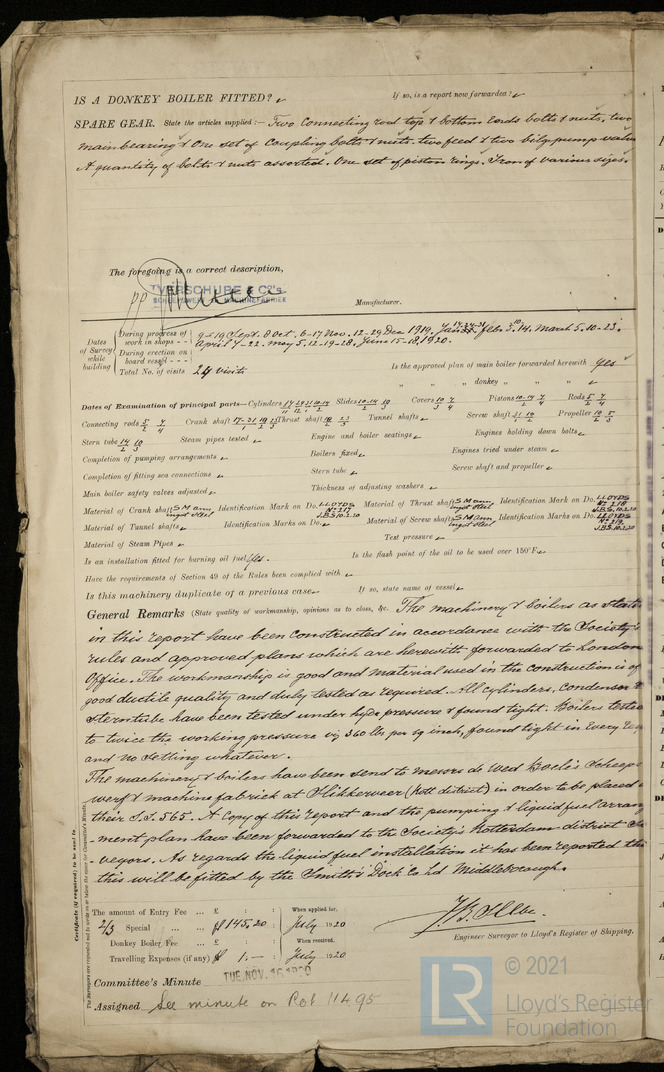 IS A DONKEY BOILER FITTED? If so, is a report now forwarded?
SPARE GEAR. State the articles supplied:— Two Connecting rod top & bottom Ends bolts & nuts, two
main bearing & One set of Coupling bolts & nuts. two feed & two bilge pump
A quantity of bolts & nuts assorted. One set of piston rings. Iron of various sizes.
The foregoing is a correct description,
VERSCHURE & Co's
SCHEEPSWERF MACHINEFABRIEK
pp
Manufacturer.
Dates of Survey while building
During progress of work in shops - - 9-19 Sept. 8 Oct. 6-17 Nov. 12-29 Dec 1919. March 5.10-23.
During erection on board vessel - - - April 7-22. may 5.12-19-28. June 15-18, 1920.
Total No. of visits 24 visits
Is the approved plan of main boiler forwarded herewith yes
" " " donkey " " "
Dates of Examination of principal parts—Cylinders Slides Covers Pistons Rods
Connecting rods Crank shaft Thrust shaft Tunnel shafts Screw shaft Propeller
Stern tube Steam pipes tested Engine and boiler seatings Engines holding down bolts
Completion of pumping arrangements Boilers fixed Engines tried under steam
Completion of fitting sea connections Stern tube Screw shaft and propeller
Main boiler safety valves adjusted Thickness of adjusting washers
Material of Crank shaft S M ann ingot steel Identification Mark on Do. LLOYDS No 217 J.B.S. 10.2.20 Material of Thrust shaft S M ann ingot steel Identification Mark on Do. LLOYDS No 218 J.B.S. 10.2.20
Material of Tunnel shafts Identification Marks on Do. Material of Screw shafts S M ann ingot steel Identification Marks on Do. LLOYDS No 219 J.B.S. 10.2.20
Material of Steam Pipes Test pressure
Is an installation fitted for burning oil fuel Yes. Is the flash point of the oil to be used over 150°F.
Have the requirements of Section 49 of the Rules been complied with
Is this machinery duplicate of a previous case If so, state name of vessel
General Remarks (State quality of workmanship, opinions as to class, &c. The machinery & boilers as
in this report have been constructed in accordance with the Society's
rules and approved plans which are herewith forwarded to London
Office. The workmanship is good and material used in the construction is of
good ductile quality and duly tested as required. All cylinders, Condenser &
sterntube have been tested under hydr pressure & found tight. Boilers tested
to twice the working pressure viz 360 lbs per sq inch, found tight in Every
and no setting whatever.
The machinery & boilers have been send to messrs de Wed Boele's
werf & machine fabriek at Slikkerveer (Rott district) in order to be placed
their S.S. 565. A Copy of this report and the pumping & liquid fuel
-ment plan have been forwarded to the Society's Rotterdam district
veyors. As regards the liquid fuel installation it has been reported
this will be fitted by the Smith's Dock Co Ld Middlesborough.
Certificate (if required) to be sent to
The Surveyors are requested not to write on or below the space for Committee's Minute.
The amount of Entry Fee ... £ : : When applied for,
2/3 Special ... ... 145,20 : July 1920
Donkey Boiler Fee ... £ : : When received,
Travelling Expenses (if any) 1.— : July 1920
Engineer Surveyor to Lloyd's Register of Shipping.
Committee's Minute TUE. NOV. 16 1920
Assigned See minute on Rot 11495
LR © 2021
Lloyd's Register
Foundation